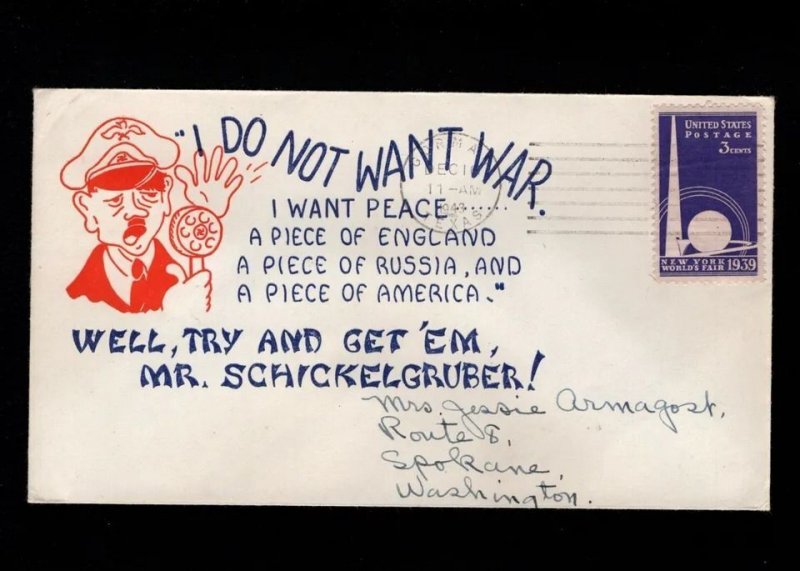 "I DO NOT WANT WAR.
I WANT PEACE.......
A PIECE OF ENGLAND
A PIECE OF RUSSIA, AND
A PIECE OF AMERICA."
WELL, TRY AND GET 'EM,
MR. SCHICKELGRUBER!
GERMA
DEC 1
11-AM
TEXAS
UNITED STATES
POSTAGE
3 CENTS
NEW YORK
WORLD'S FAIR 1939
Mrs. Jessie Armagost,
Route 8,
Spokane,
Washington.